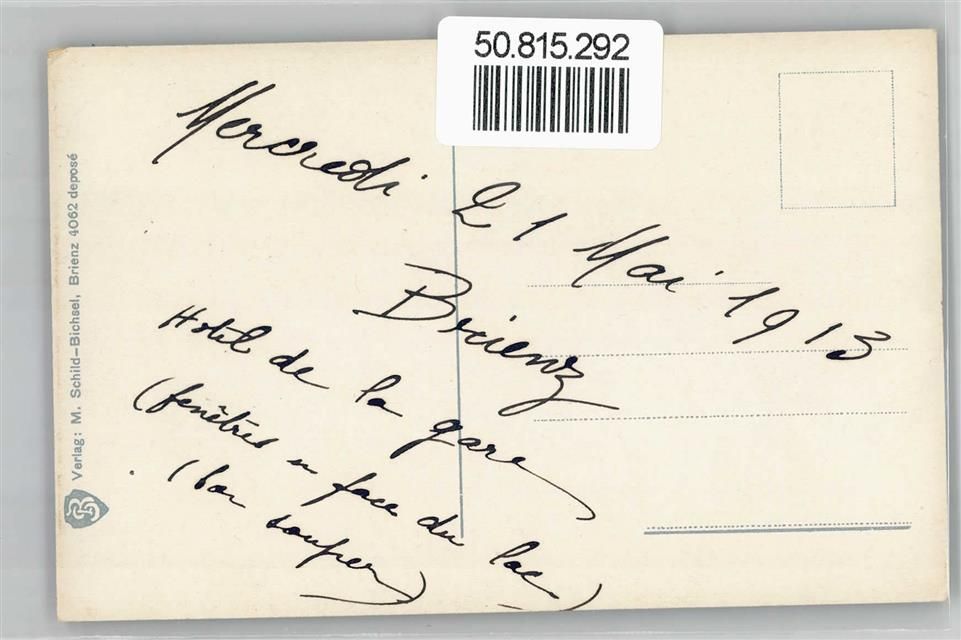 50.815.292
Mercredi 21 Mai 1913
Brienz
Hotel de la gare
(fenêtres en face du lac)
(bon souper)
Verlag: M. Schild-Bichsel, Brienz 4062 deposé